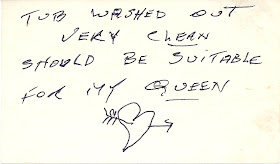 TUB WASHED OUT
VERY CLEAN
SHOULD BE SUITABLE
FOR MY QUEEN